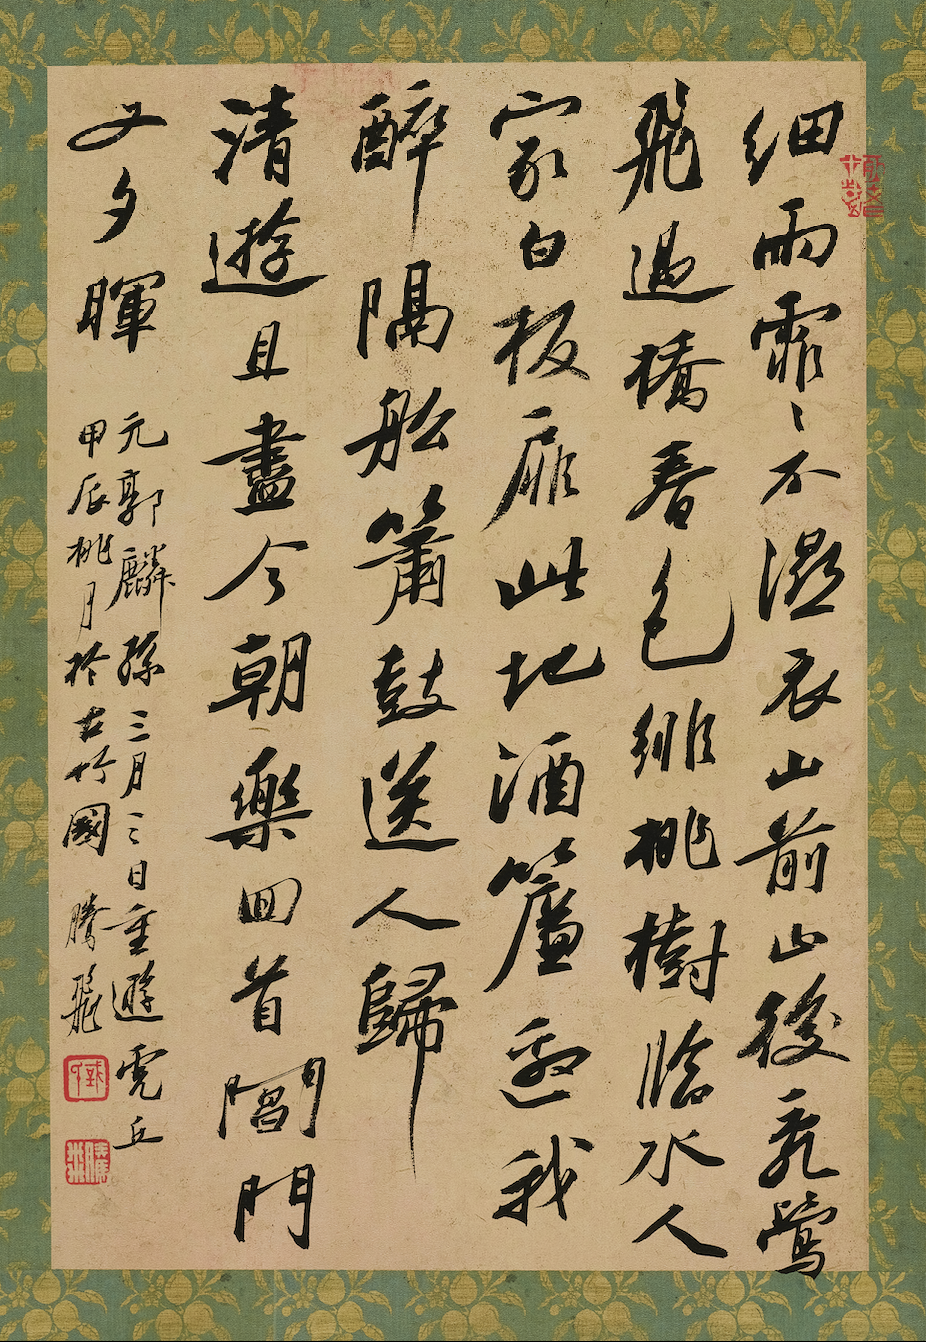 細雨霏〻不濕衣山前山後亂鶯
飛過橋春色緋桃樹臨水人
家白板扉此地酒簾邀我
醉隔船簫鼓送人歸
清遊且盡今朝樂回首閶門
又夕暉
元郭麟孫三月三日重遊虎丘
甲辰桃月於古竹國 騰飛